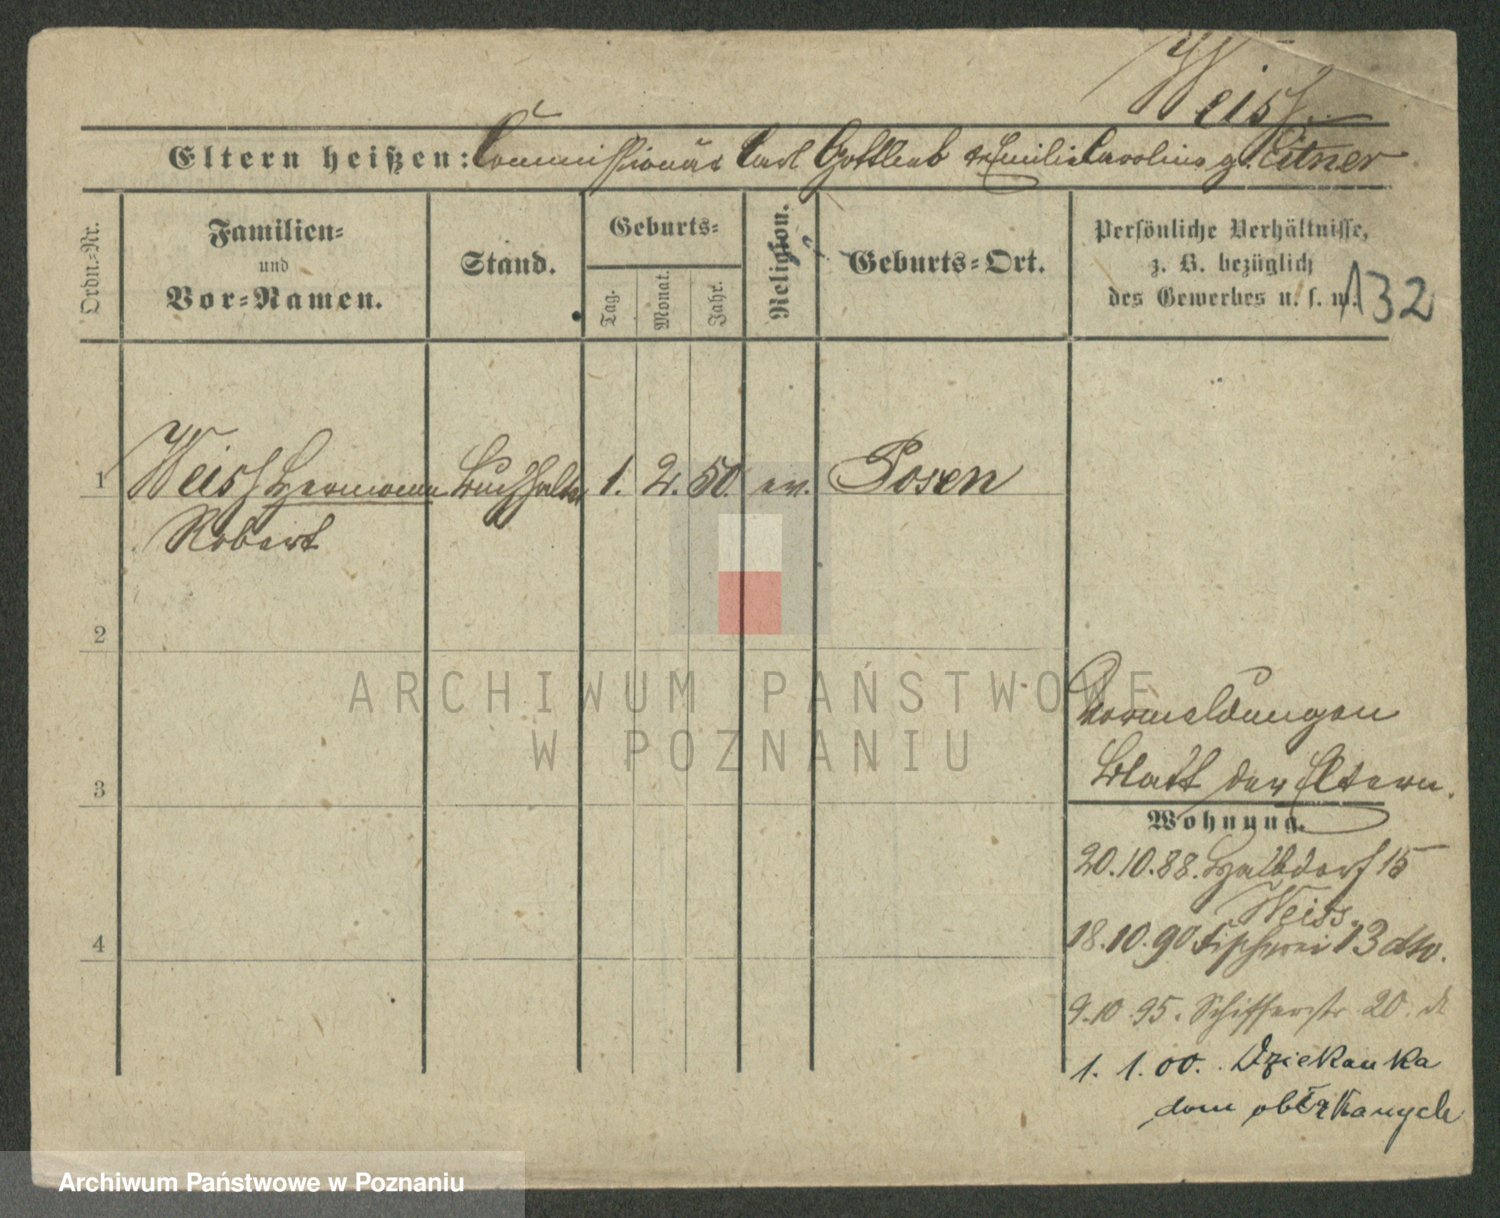 Weiss.
Eltern heißen: Commissionär Carl Gottlieb u Emilie Caroline g. Eitner
Ordn.-Nr.
Familien-
und
Vor-Namen.
Stand.
Geburts-
Tag.
Monat.
Jahr.
Religion.
Geburts-Ort.
Persönliche Verhältnisse,
z. B. bezüglich
des Gewerbes u. s. w.
132
1 Weiss Hermann Buchhalter 1. 2. 50. ev. Posen
Robert
2
3
4
Vormeldungen
Blatt der Eltern.
Wohnung.
20.10.88. Halbdorf 15
Weiss.
18.10.90 Fischerei 13 dto.
9.10.95. Schifferstr 20.
1. 1. 00. Dziekanka
dom obłąkanych
ARCHIWUM PAŃSTWOWE
W POZNANIU
Archiwum Państwowe w Poznaniu